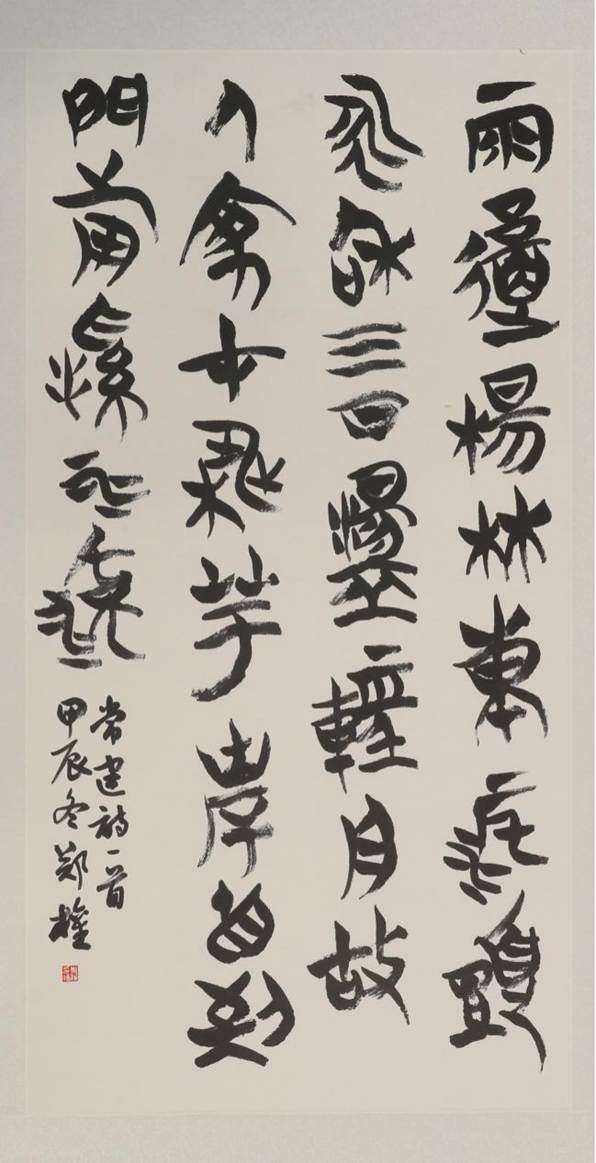 雨歇楊林東渡頭
永和三日盪輕舟故
人家在桃華岸直到
門前溪水流
常建詩一首
甲辰冬鄭權